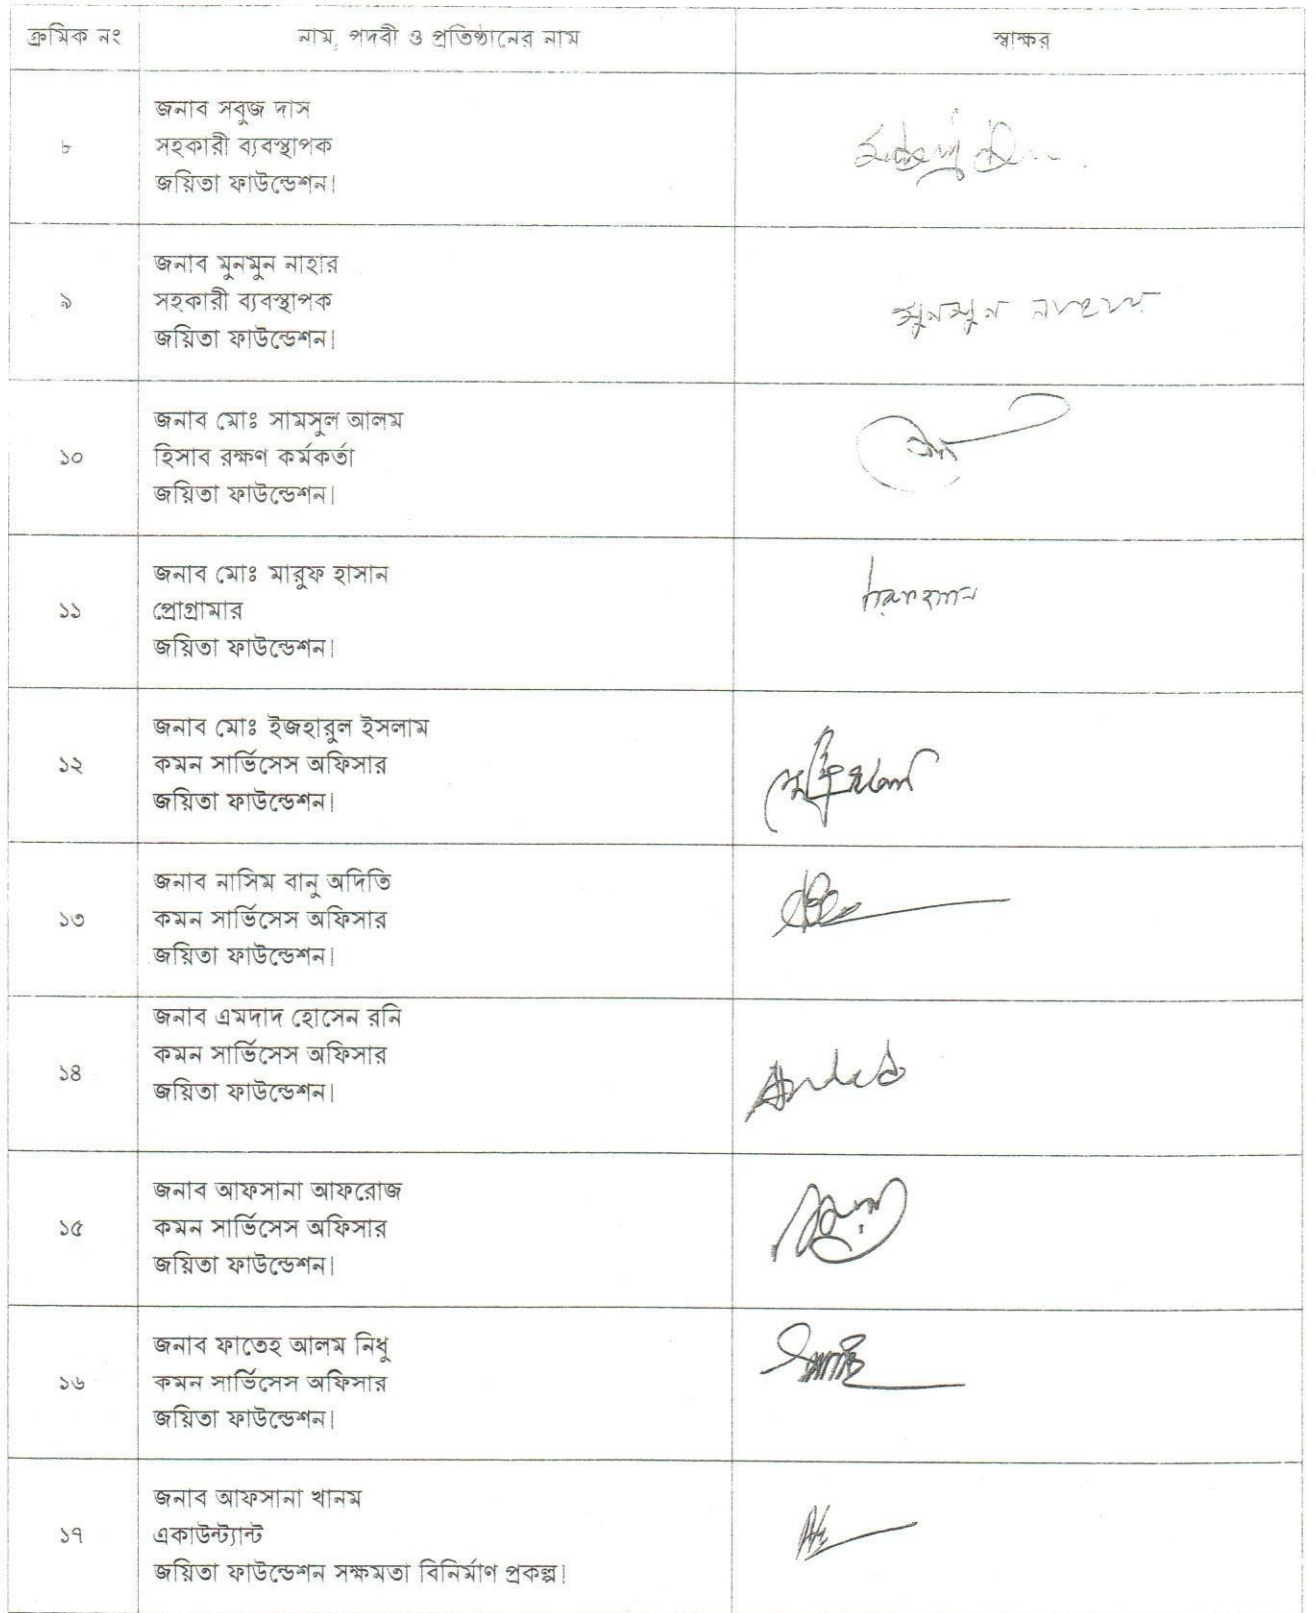 ক্রমিক নং নাম, পদবী ও প্রতিষ্ঠানের নাম স্বাক্ষর
জনাব সবুজ দাস
৮ সহকারী ব্যবস্থাপক
জয়িতা ফাউন্ডেশন।
জনাব মুনমুন নাহার
৯ সহকারী ব্যবস্থাপক মুনমুন নাহার
জয়িতা ফাউন্ডেশন।
জনাব মোঃ সামসুল আলম
১০ হিসাব রক্ষণ কর্মকর্তা
জয়িতা ফাউন্ডেশন।
জনাব মোঃ মারুফ হাসান
১১ প্রোগ্রামার
জয়িতা ফাউন্ডেশন।
জনাব মোঃ ইজহারুল ইসলাম
১২ কমন সার্ভিসেস অফিসার
জয়িতা ফাউন্ডেশন।
জনাব নাসিম বানু অদিতি
১৩ কমন সার্ভিসেস অফিসার
জয়িতা ফাউন্ডেশন।
জনাব এমদাদ হোসেন রনি
কমন সার্ভিসেস অফিসার
১৪ জয়িতা ফাউন্ডেশন।
জনাব আফসানা আফরোজ
১৫ কমন সার্ভিসেস অফিসার
জয়িতা ফাউন্ডেশন।
জনাব ফাতেহ আলম নিধু
১৬ কমন সার্ভিসেস অফিসার
জয়িতা ফাউন্ডেশন।
জনাব আফসানা খানম
১৭ একাউন্ট্যান্ট
জয়িতা ফাউন্ডেশন সক্ষমতা বিনির্মাণ প্রকল্প।